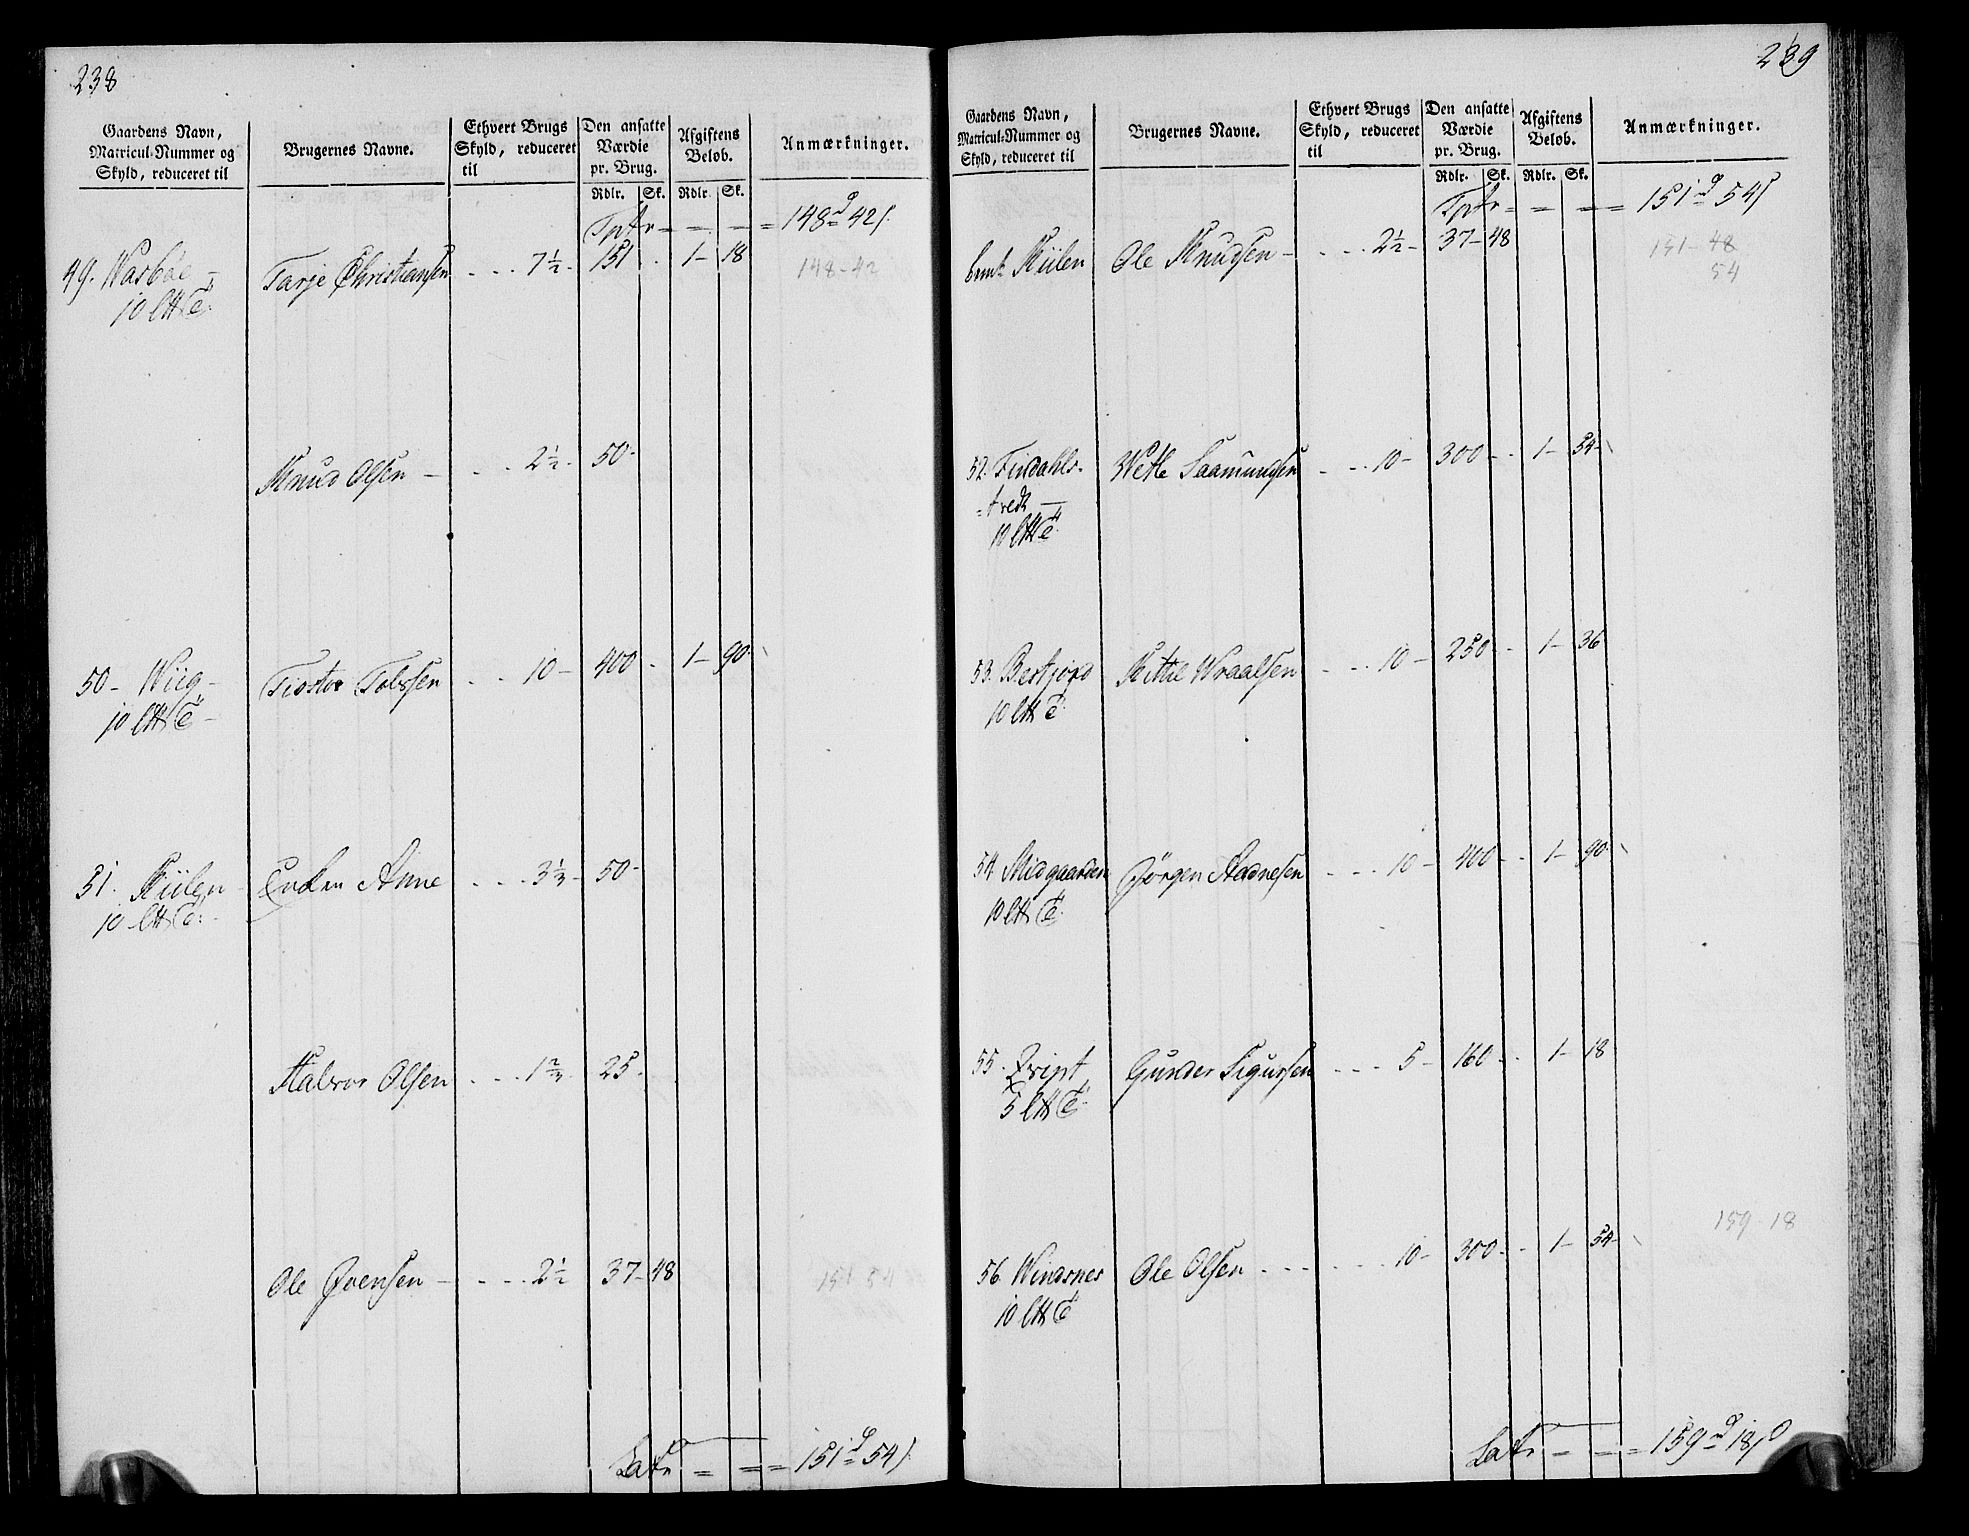 238
Gaardens Navn,
Matricul-Nummer og
Skyld, reduceret til
Brugernes Navne.
Ethvert Brugs
Skyld, reduceret
til
Den ansatte
Værdie
pr. Brug.
Rdlr. Sk.
Afgiftens
Belob.
Rdlr. Sk.
Anmærkninger.
148 42
49. Wasbøe Tarje Christiansen 7 1/2 151 1 18 148-42
10
Knud Olsen 2 1/2 50
50 Wiig Tiostov Tolvsen 10 400 1 90
10
51. Kiilen Enken Anne 3 1/3 50
10
Halvor Olsen 1 2/3 25
Ole Evensen 2 1/2 37 48 151-54
Latr 151 54
239
Gaardens Navn,
Matricul-Nummer og
Skyld, reduceret til
Brugernes Navne.
Ethvert Brugs
Skyld, reduceret
til
Den ansatte
Værdie
pr. Brug.
Rdlr. Sk.
Afgiftens
Belob.
Rdlr. Sk.
Anmærkninger.
151 54
Kiilen Ole Knudsen 2 1/2 37 48 151-48
54
52. Findahls- Wetle Saamundsen 10 300 1 54
10
53. Bestjord Kittil Wraalsen 10 250 1 36
10
54. Midgaarden Jörgen Aadnesen 10 400 1 90
10
55. Gunder Sigursen 5 160 1 18
5
159-18
56. Windsnes Ole Olsen 10 300 1 54
10
Latr 159 18